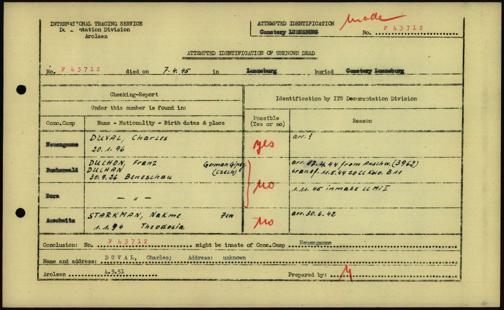 INTERNATIONAL TRACING SERVICE
Documentation Division
Arolsen
ATTEMPTED IDENTIFICATION made
Cemetery LUENEBURG No. F 43712
ATTEMPTED IDENTIFICATION OF UNKNOWN DEAD
No. F 43712 died on 7.4.45 in Lueneburg buried Cemetery Lueneburg
Checking-Report
Under this number is found in:
Identification by ITS Documentation Division
Conc.Camp Name - Nationality - Birth dates & place
Possible (Yes or no)
Reason
Neuengamme DUVAL, Charles
20.1.96
yes
arr. ?
Buchenwald DULHON, Franz German Gipsy
DULHAN (Czech)
30.9.26 Beneschau
no
44 from Auschw. (3962)
transf. 11.5.44
Dora - " -
1.11.45 inmate
Auschwitz STARKMAN, Nakme
1.1.94 Theodosia
no
arr. 30.6.42
Conclusion: No. F 43712 might be inmate of Conc.Camp Neuengamme
Name and address: DUVAL, Charles; Address: unknown
Arolsen 4.9.51 Prepared by: